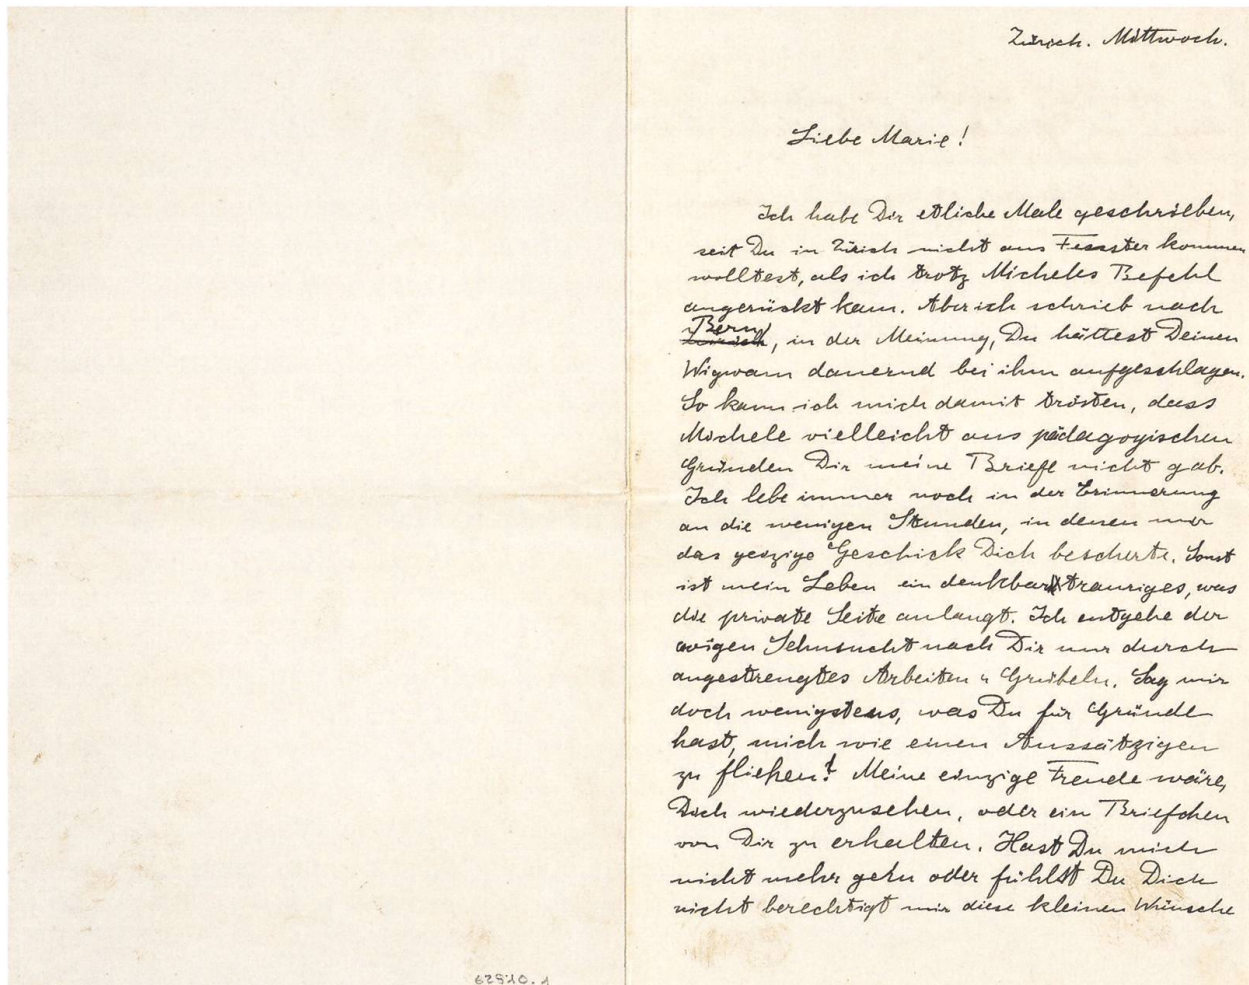 Zürich. Mittwoch.
Liebe Marie!
Ich habe Dir etliche Male geschrieben,
seit Du in Zürich nicht ans Fenster kommen
wolltest, als ich trotz Micheles Befehl
angerückt kam. Aber ich schrieb nach
Bern, in der Meinung, Du hättest Deinen
Wigwam dauernd bei ihm aufgeschlagen.
So kann ich mich damit trösten, dass
Michele vielleicht aus pädagogischen
Gründen Dir meine Briefe nicht gab.
Ich lebe immer noch in der Erinnerung
an die wenigen Stunden, in denen mir
das geizige Geschick Dich bescherte. Sonst
ist mein Leben ein denkbar trauriges, was
die private Seite anlangt. Ich entgehe der
ewigen Sehnsucht nach Dir nur durch
angestrengtes Arbeiten u Grübeln. Sag mir
doch wenigstens, was Du für Gründe
hast, mich wie einen Aussätzigen
zu fliehen! Meine einzige Freude wäre,
Dich wiederzusehen, oder ein Briefchen
von Dir zu erhalten. Hast Du mich
nicht mehr gern oder fühlst Du Dich
nicht berechtigt mir diese kleinen Wünsche
62810.1